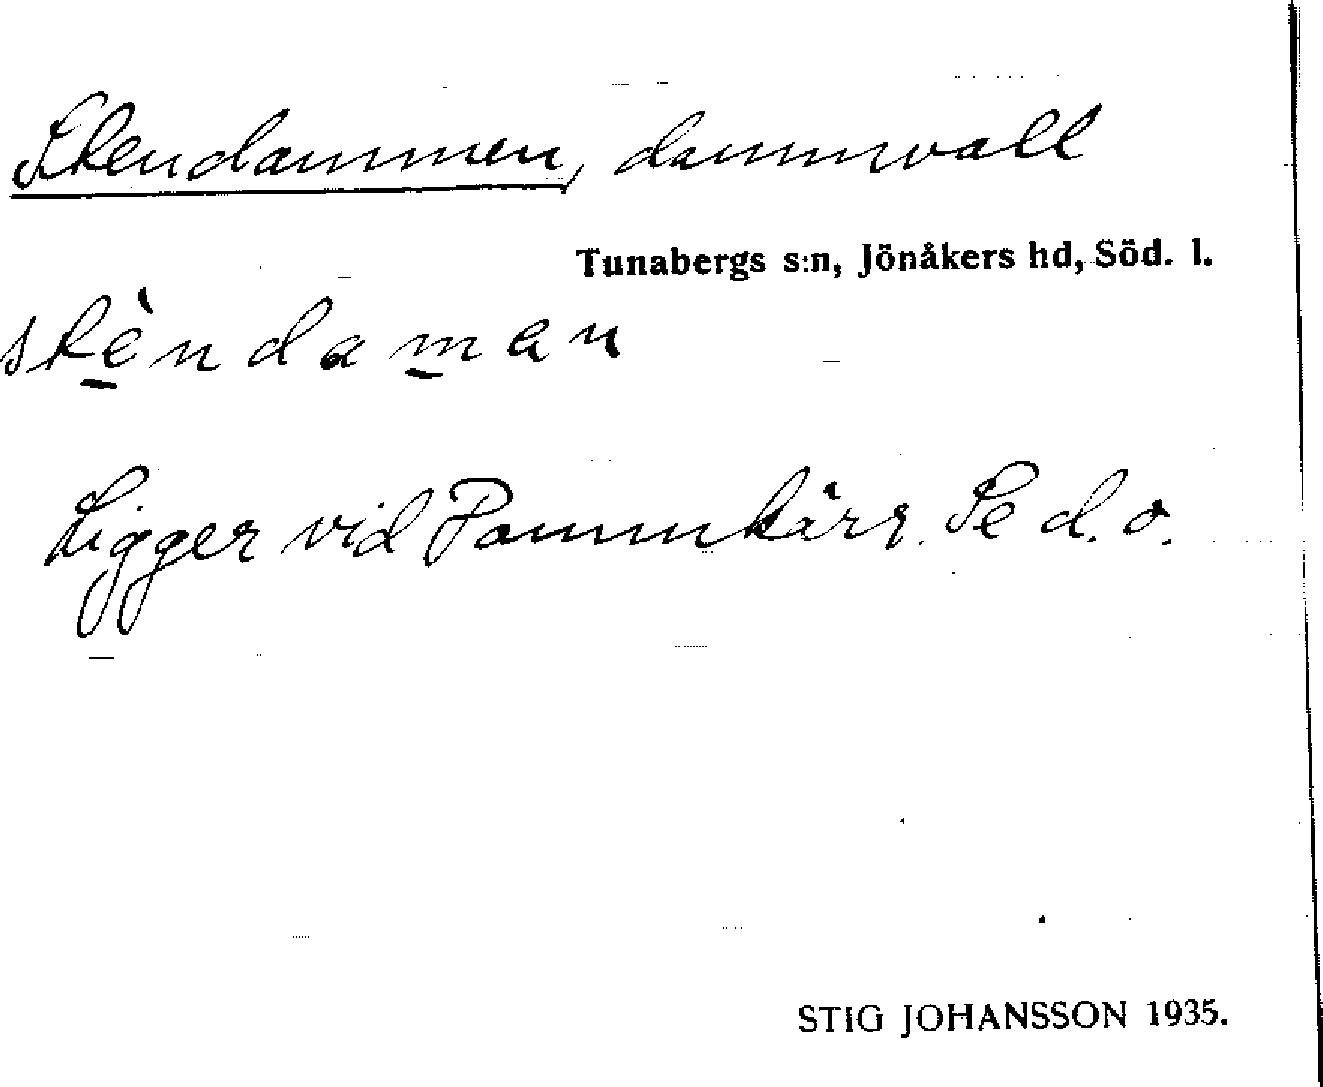 Stendammen, dammvall
Tunabergs s:n, Jönåkers hd, Söd. l.
stèndaman
Ligger vid Pannkärr. Se d. o.
STIG JOHANSSON 1935.